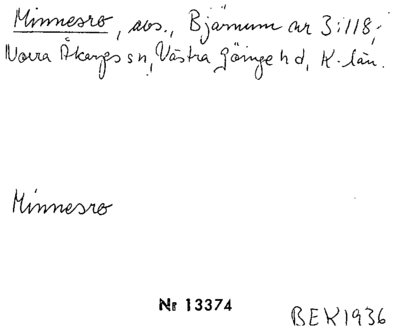 Minnesro, avs., Bjärnum nr 3:118,
Norra Åkarps sn, Västra Göinge hd, K-län.
Minnesro
Nr 13374
BEK1936